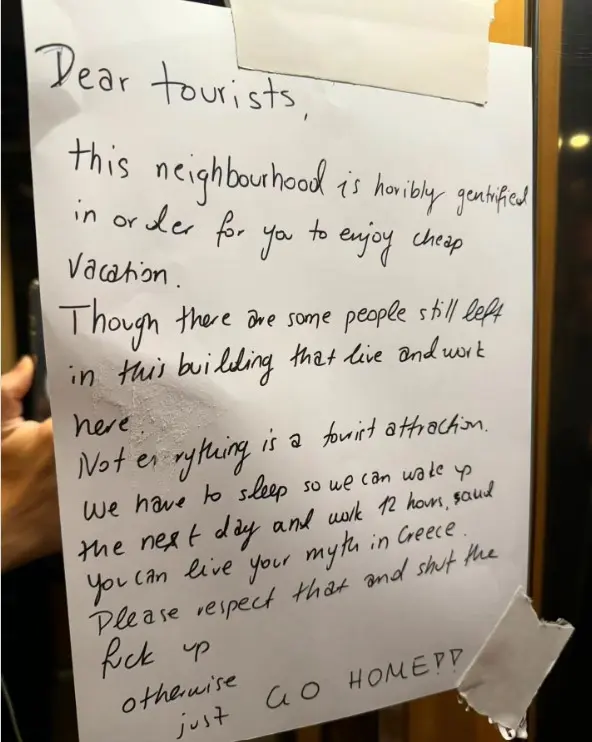 Dear tourists,
this neighbourhood is horibly gentrified
in order for you to enjoy cheap
vacation.
Though there are some people still left
in this building that live and work
here
Not everything is a tourist attraction.
We have to sleep so we can wake up
the next day and work 12 hours,
you can live your myth in Greece.
Please respect that and shut the
fuck up
otherwise
just GO HOME!!